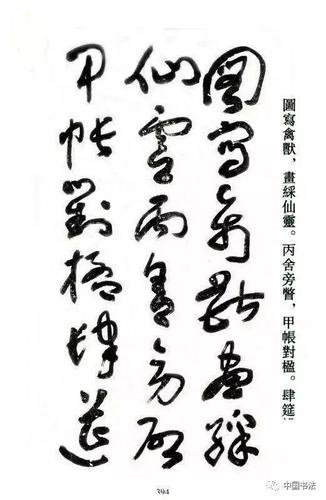 圖寫禽獸，畫綵仙靈。丙舍旁啓，甲帳對楹。肆筵
圖寫禽獸畫綵
仙靈丙舍旁啓
甲帳對楹肆筵
394
中国书法